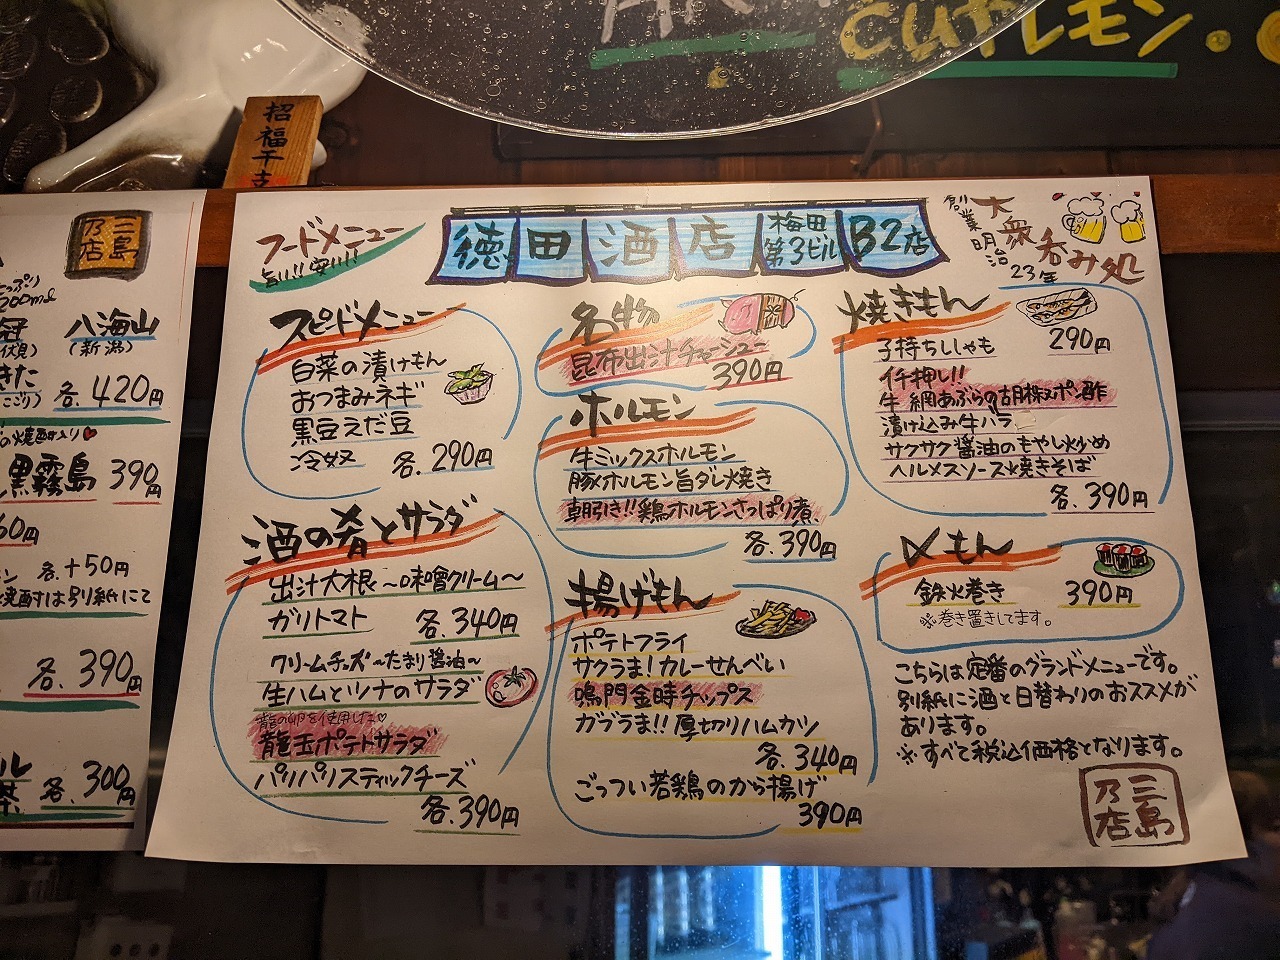 cutレモン.
招福干支
三島
乃店
八海山
(新潟)
各.420円
黒霧島 390円
60円
各+50円
は別紙にて
各.390円
各.300円
フードメニュー
旨い!! 安い!!
徳田酒店 梅田第3ビル B2店
創業明治23年
大衆呑み処
スピードメニュー
白菜の漬けもん
おつまみネギ
黒豆えだ豆
冷奴 各.290円
酒の肴とサラダ
出汁大根〜味噌クリーム〜
ガリトマト 各.340円
クリームチーズ〜たまり醤油〜
生ハムとツナのサラダ
龍の卵を使用した♡
龍玉ポテトサラダ
パリパリスティックチーズ
各.390円
名物
昆布出汁チャーシュー
390円
ホルモン
牛ミックスホルモン
豚ホルモン旨ダレ焼き
朝引き!!鶏ホルモンさっぱり煮
各.390円
揚げもん
ポテトフライ
サクうま!カレーせんべい
鳴門金時チップス
ガブうま!!厚切りハムカツ
各.340円
ごっつい若鶏のから揚げ
390円
焼きもん
子持ちししゃも 290円
イチ押し!!
牛網あぶらの胡椒ポン酢
漬け込み牛ハラミ
サクサク醤油のもやし炒め
ヘルメスソース焼きそば
各.390円
〆もん
鉄火巻き 390円
※巻き置きしてます。
こちらは定番のグランドメニューです。
別紙に酒と日替わりのおススメが
あります。
※すべて税込価格となります。
三島
乃店